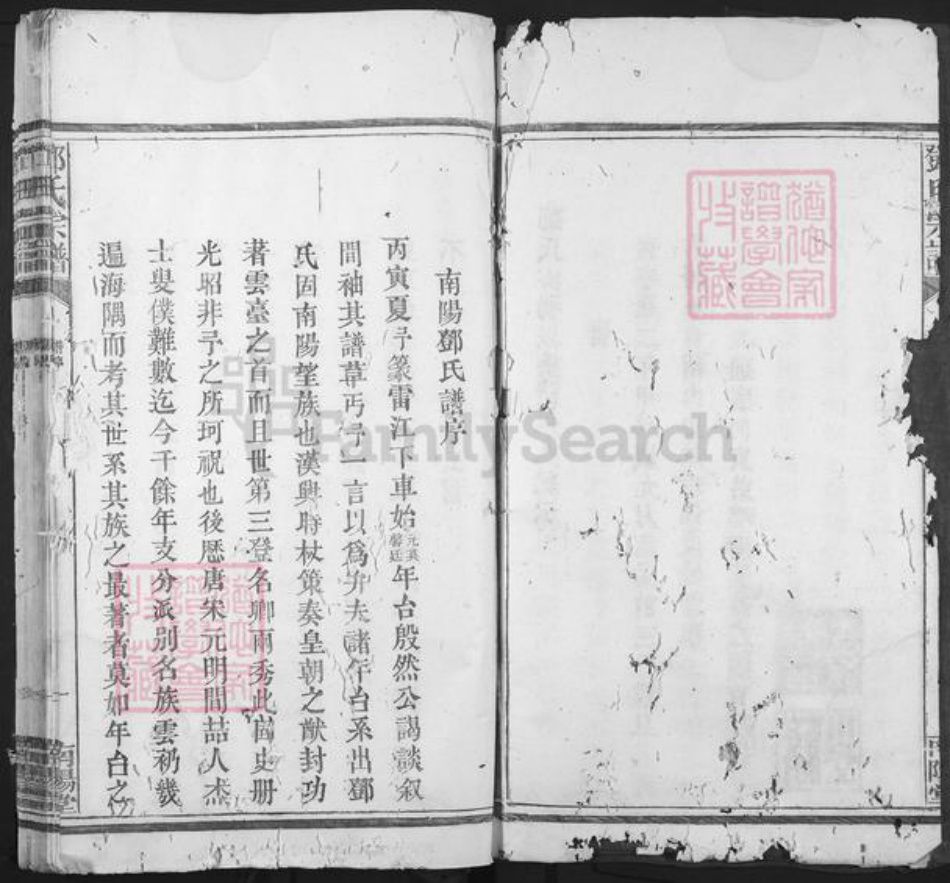 鄧氏宗譜
南陽堂
南陽鄧氏譜序
丙寅夏予篆雷江下車始元英馨廷年台殷然公謁談叙
間袖其譜草丐予一言以為弁夫諸年台系出鄧
氏固南陽望族也漢興時杖策奏皇朝之猷封功
著雲臺之首而且世第三登名卿兩秀此固史册
光昭非予之所珂祝也後歷唐宋元明間喆人杰
士叟僕難數迄今千餘年支分派别名族雲礽幾
遍海隅而考其世系其族之最著者莫如年台之
鄧氏宗譜
譜序
南陽堂
譜學會
收藏
FamilySearch